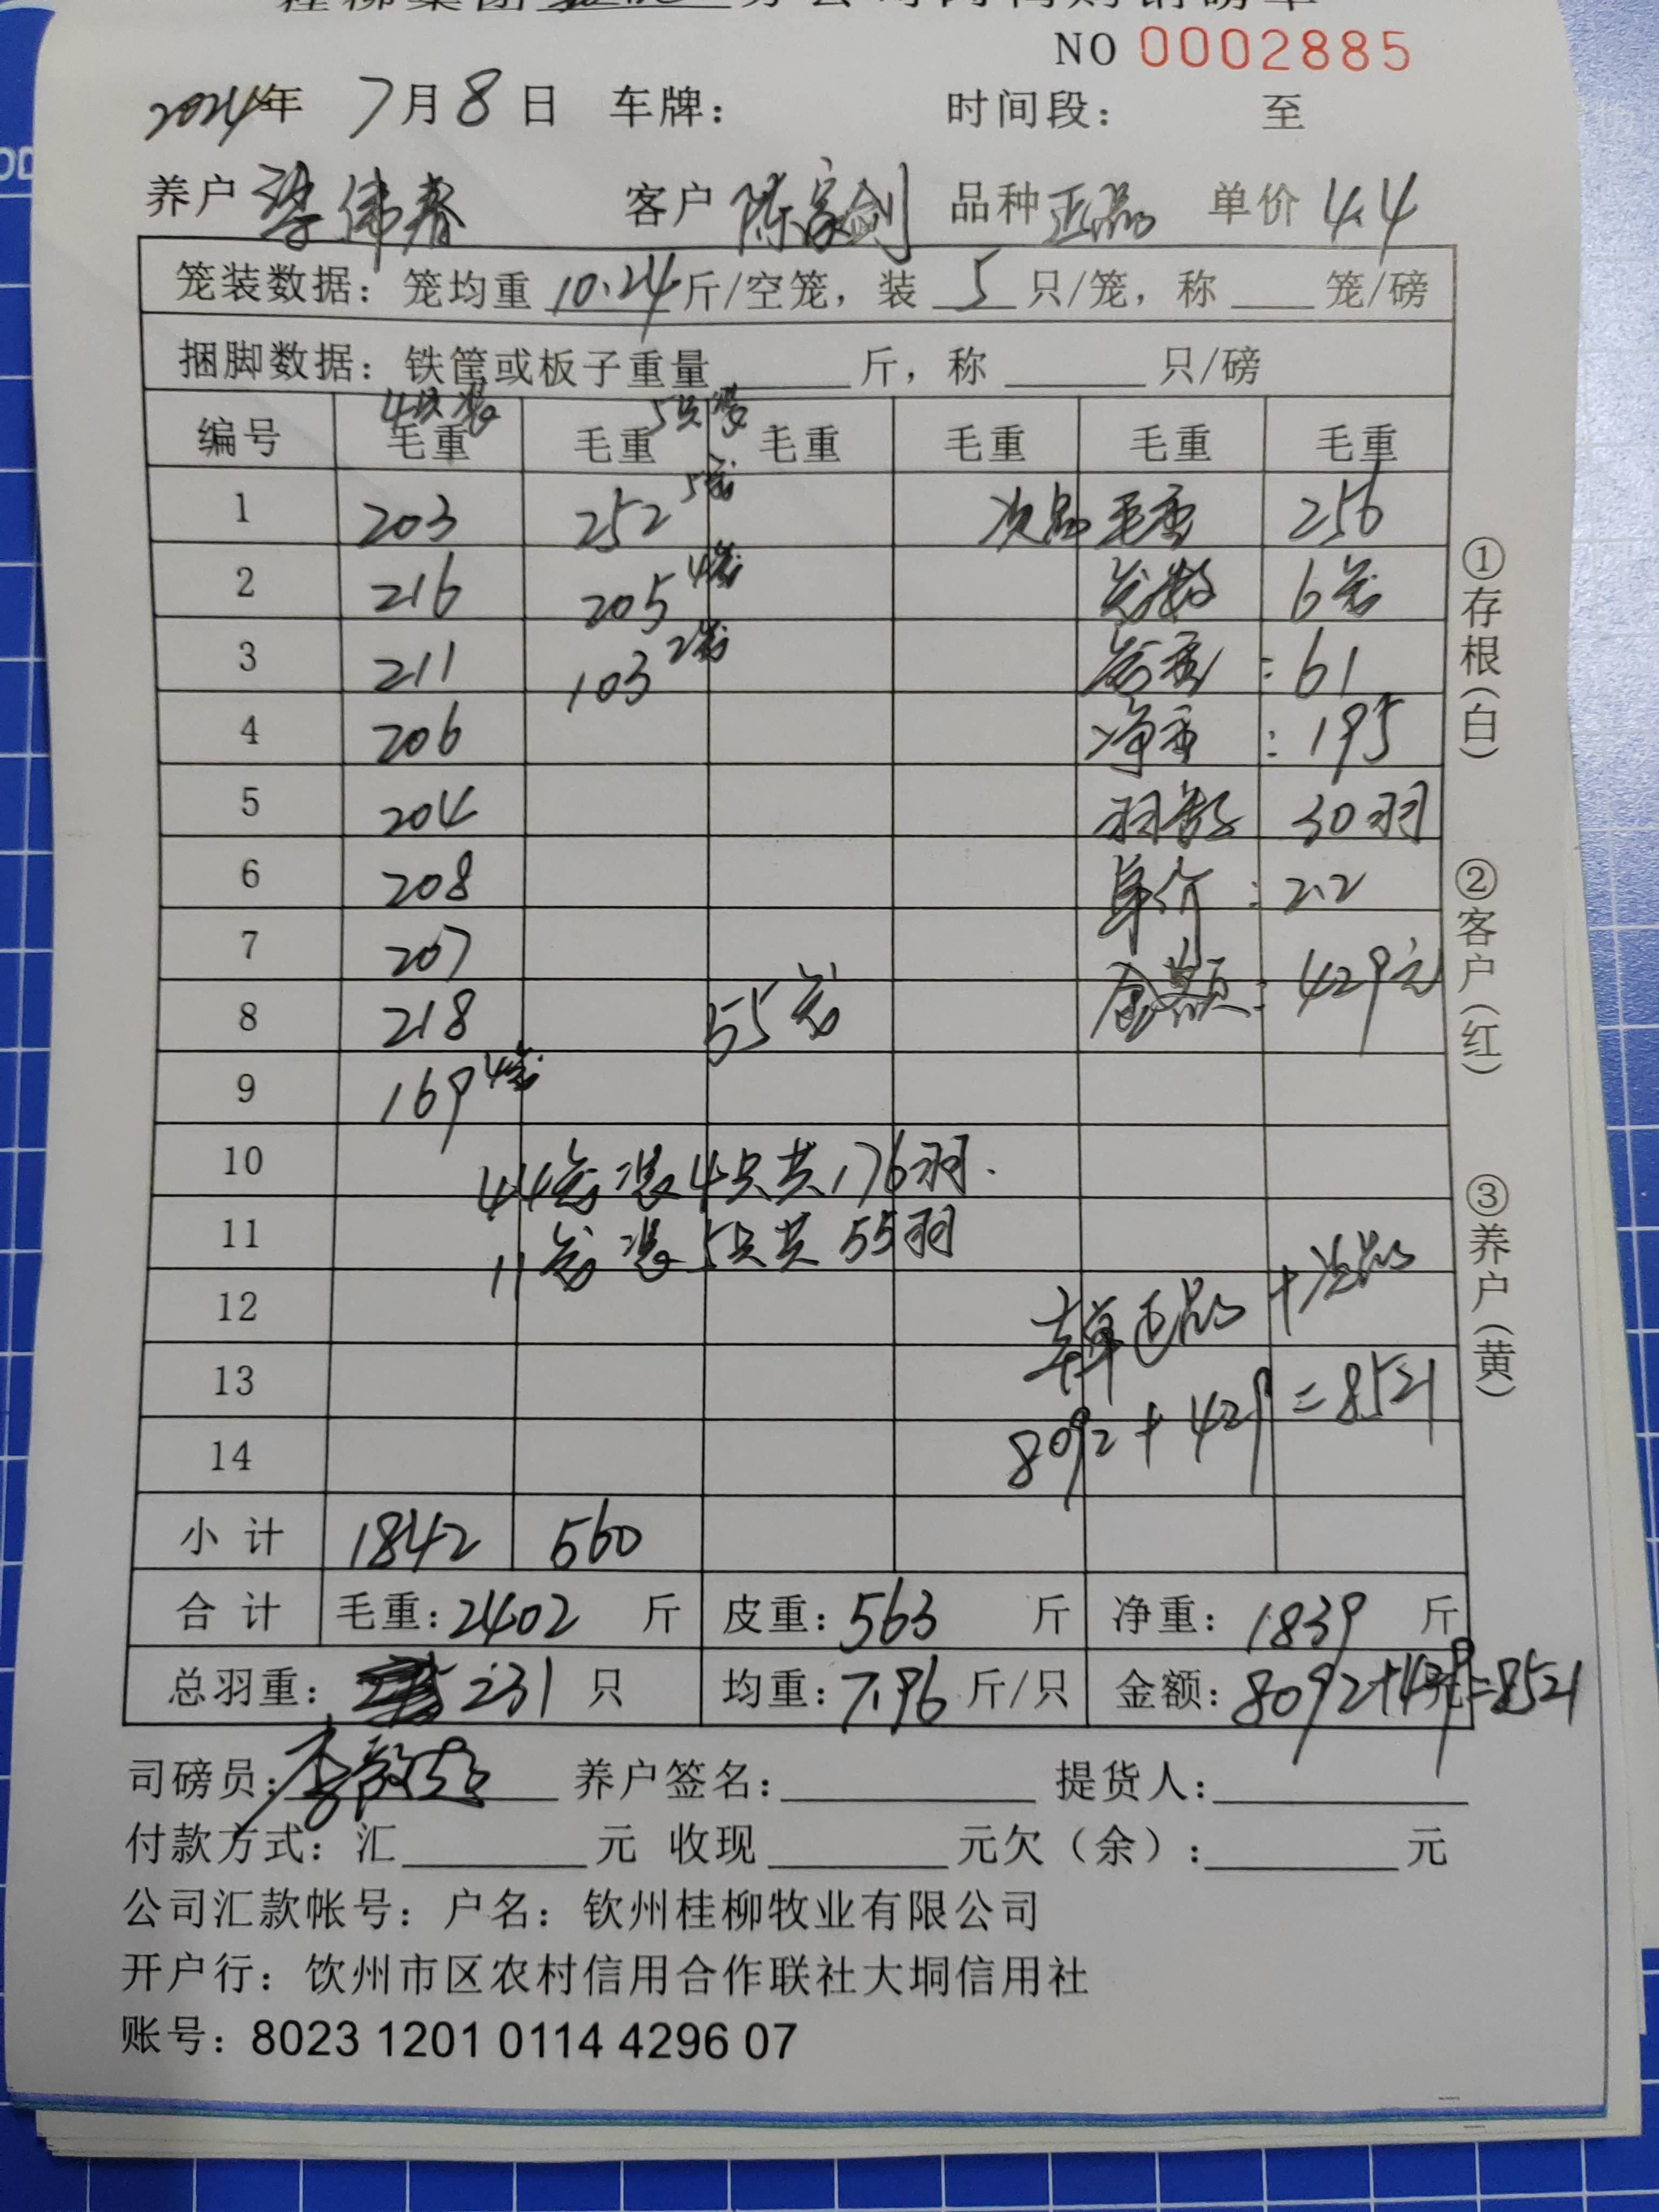 NO 0002885
2024年 7月8日 车牌： 时间段： 至
养户 梁伟春 客户 陈家剑 品种 正品 单价 4.4
笼装数据：笼均重 10.24 斤/空笼，装 5 只/笼，称 笼/磅
捆脚数据：铁筐或板子重量 斤，称 只/磅
4只装 5只装
编号 毛重 毛重 毛重 毛重 毛重 毛重
1 203 252 5笼 次品 毛重 256
2 216 205 4笼 笼数 6笼
3 211 103 2笼 笼重：61
4 206 净重：195
5 204 羽数 30羽
6 208 单价：2.2
7 207
8 218 55笼 金额：429元
9 169 4笼
10 44笼装4只共176羽.
11 11笼装5只共55羽
12 正品+次品
13 8092+429=8521
14
小计 1842 560
合计 毛重：2402 斤 皮重：563 斤 净重：1839 斤
总羽重：231 只 均重：7.96 斤/只 金额：8092+429=8521
司磅员： 养户签名： 提货人：
付款方式：汇 元 收现 元欠（余）： 元
公司汇款帐号：户名：钦州桂柳牧业有限公司
开户行：饮州市区农村信用合作联社大垌信用社
账号：8023 1201 0114 4296 07
①存根（白）
②客户（红）
③养户（黄）